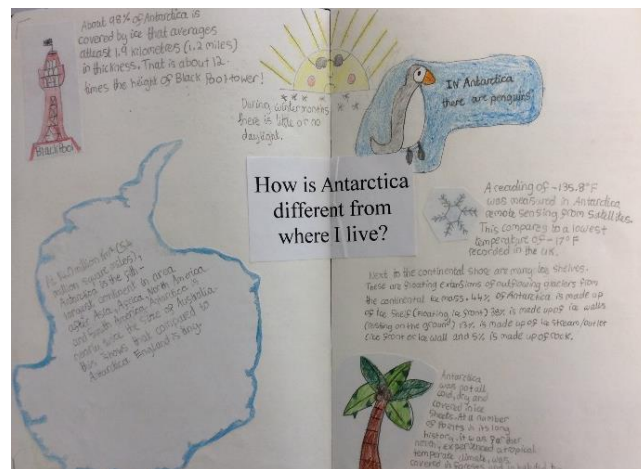 About 98% of Antarctica is
covered by ice that averages
atleast 1.9 kilometres (1.2 miles)
in thickness. That is about 12
times the height of Black Pool tower!
Blackpool
During winter months,
there is little or no
daylight.
IN Antarctica
there are penguins
How is Antarctica
different from
where I live?
A reading of -135.8°F
was measured in Antarctica
remote sensing from Satellites.
This compares to a lowest
temperature of -17°F
recorded in the UK.
million square miles),
Antarctica is the 5th-
largest continent in area
after Asia, Africa, North America
and South America. Antarctica is
nearly twice the size of Australia.
this shows that compared to
Antarctica England is tiny.
Next to the continental shore are many ice shelves.
These are floating extensions of outflowing glaciers from
the continental ice mass. 44% of Antarctica is made up
of ice shelf (floating ice front) 38% is made up of ice walls
(resting on the ground) 13% is made up of ice stream/outlet
ice front or ice wall and 5% is made up of rock.
Antarctica
was not all
cold, dry and
covered in ice
sheets. At a number
of points in its long
history, it was farther
north, experienced a tropical
temperate climate, was
covered in forests